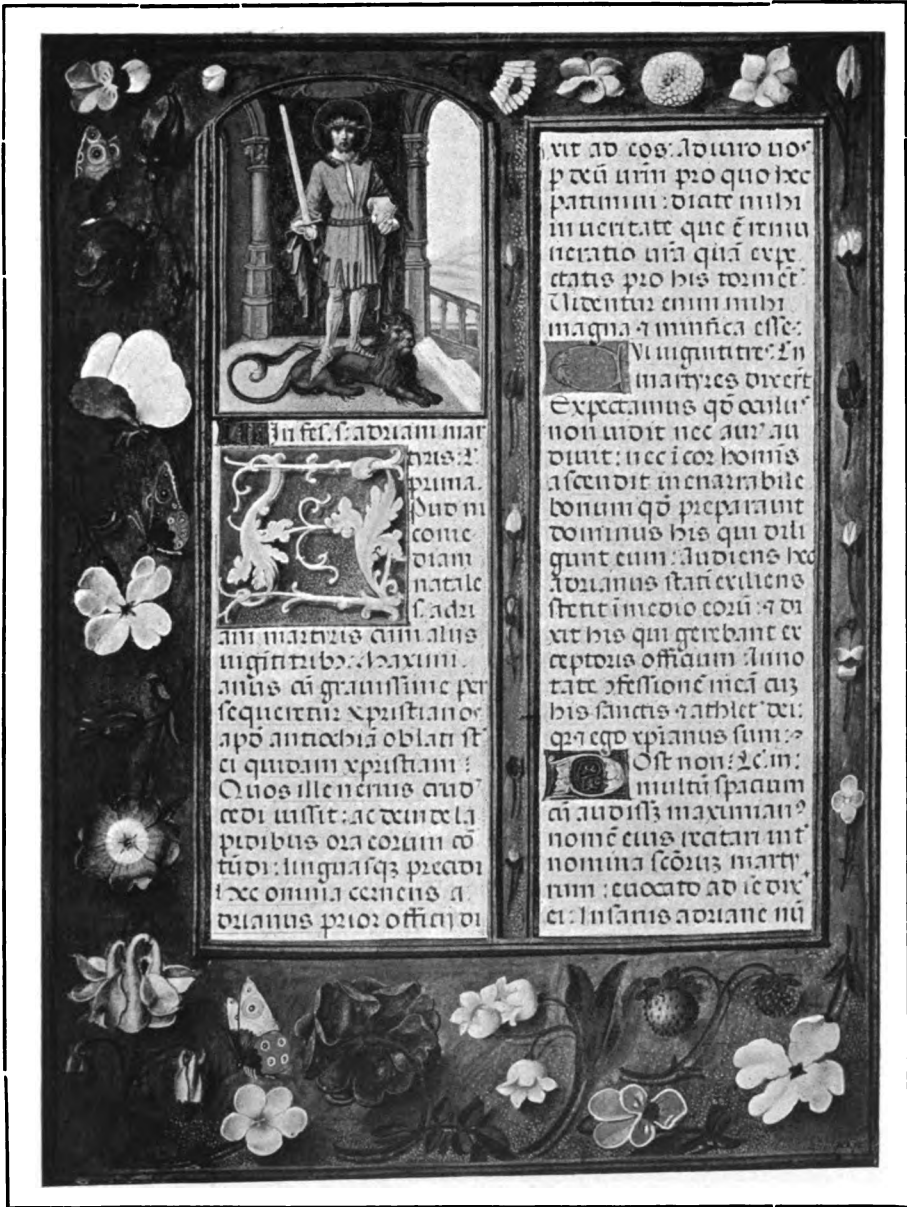 In fes. s. adriani mar
tyris. Lc̄.
prima.
Pud ni
come
diam
natale
s. adri
ani martyris cum aliis
uigīti tribꝰ. Maximi
anus cū grauissime per
sequeretur xpristianos
apd̄ antiochiā oblati sr̄
ei quidam xpristiani:
Quos ille neruis crud
cedi iussit: ac deinde la
pidibus ora eorum cō
tūdi: linguasqꝫ precidi
hec omnia cernens a
drianus prior officij di
xit ad eos: Adiuro uos
p deū urm̄ pro quo hec
patimini: dicite mihi
in ueritate que ē remu
neratio ur̄a quā expe
ctatis pro his tormēt.
Uidentur enim mihi
magna ⁊ mirifica esse:
Ui uiginti tres. Lc̄. ij
martyres dixer̄t
Expectamus qd̄ oculus
non uidit nec aurꝭ au
diuit: nec ī cor homīs
ascendit inenarrabile
bonum qd̄ preparauit
dominus his qui dili
gunt eum: Audiens hec
adrianus stati exiliens
stetit ī medio eorū: ⁊ di
xit his qui gerebant ex
ceptoris officium: Anno
tate ꝯfessionē meā cuꝫ
his sanctis ⁊ athletꝭ dei:
qꝛ ⁊ ego xp̄ianus sum:
Ost non: Lc̄. iij:
multū spacium
cū audissꝫ maximianꝰ
nomē eius recitari int̄
nomina scōruꝫ marty
rum: euocato ad se dix̄
ei: Insanis adriane nū